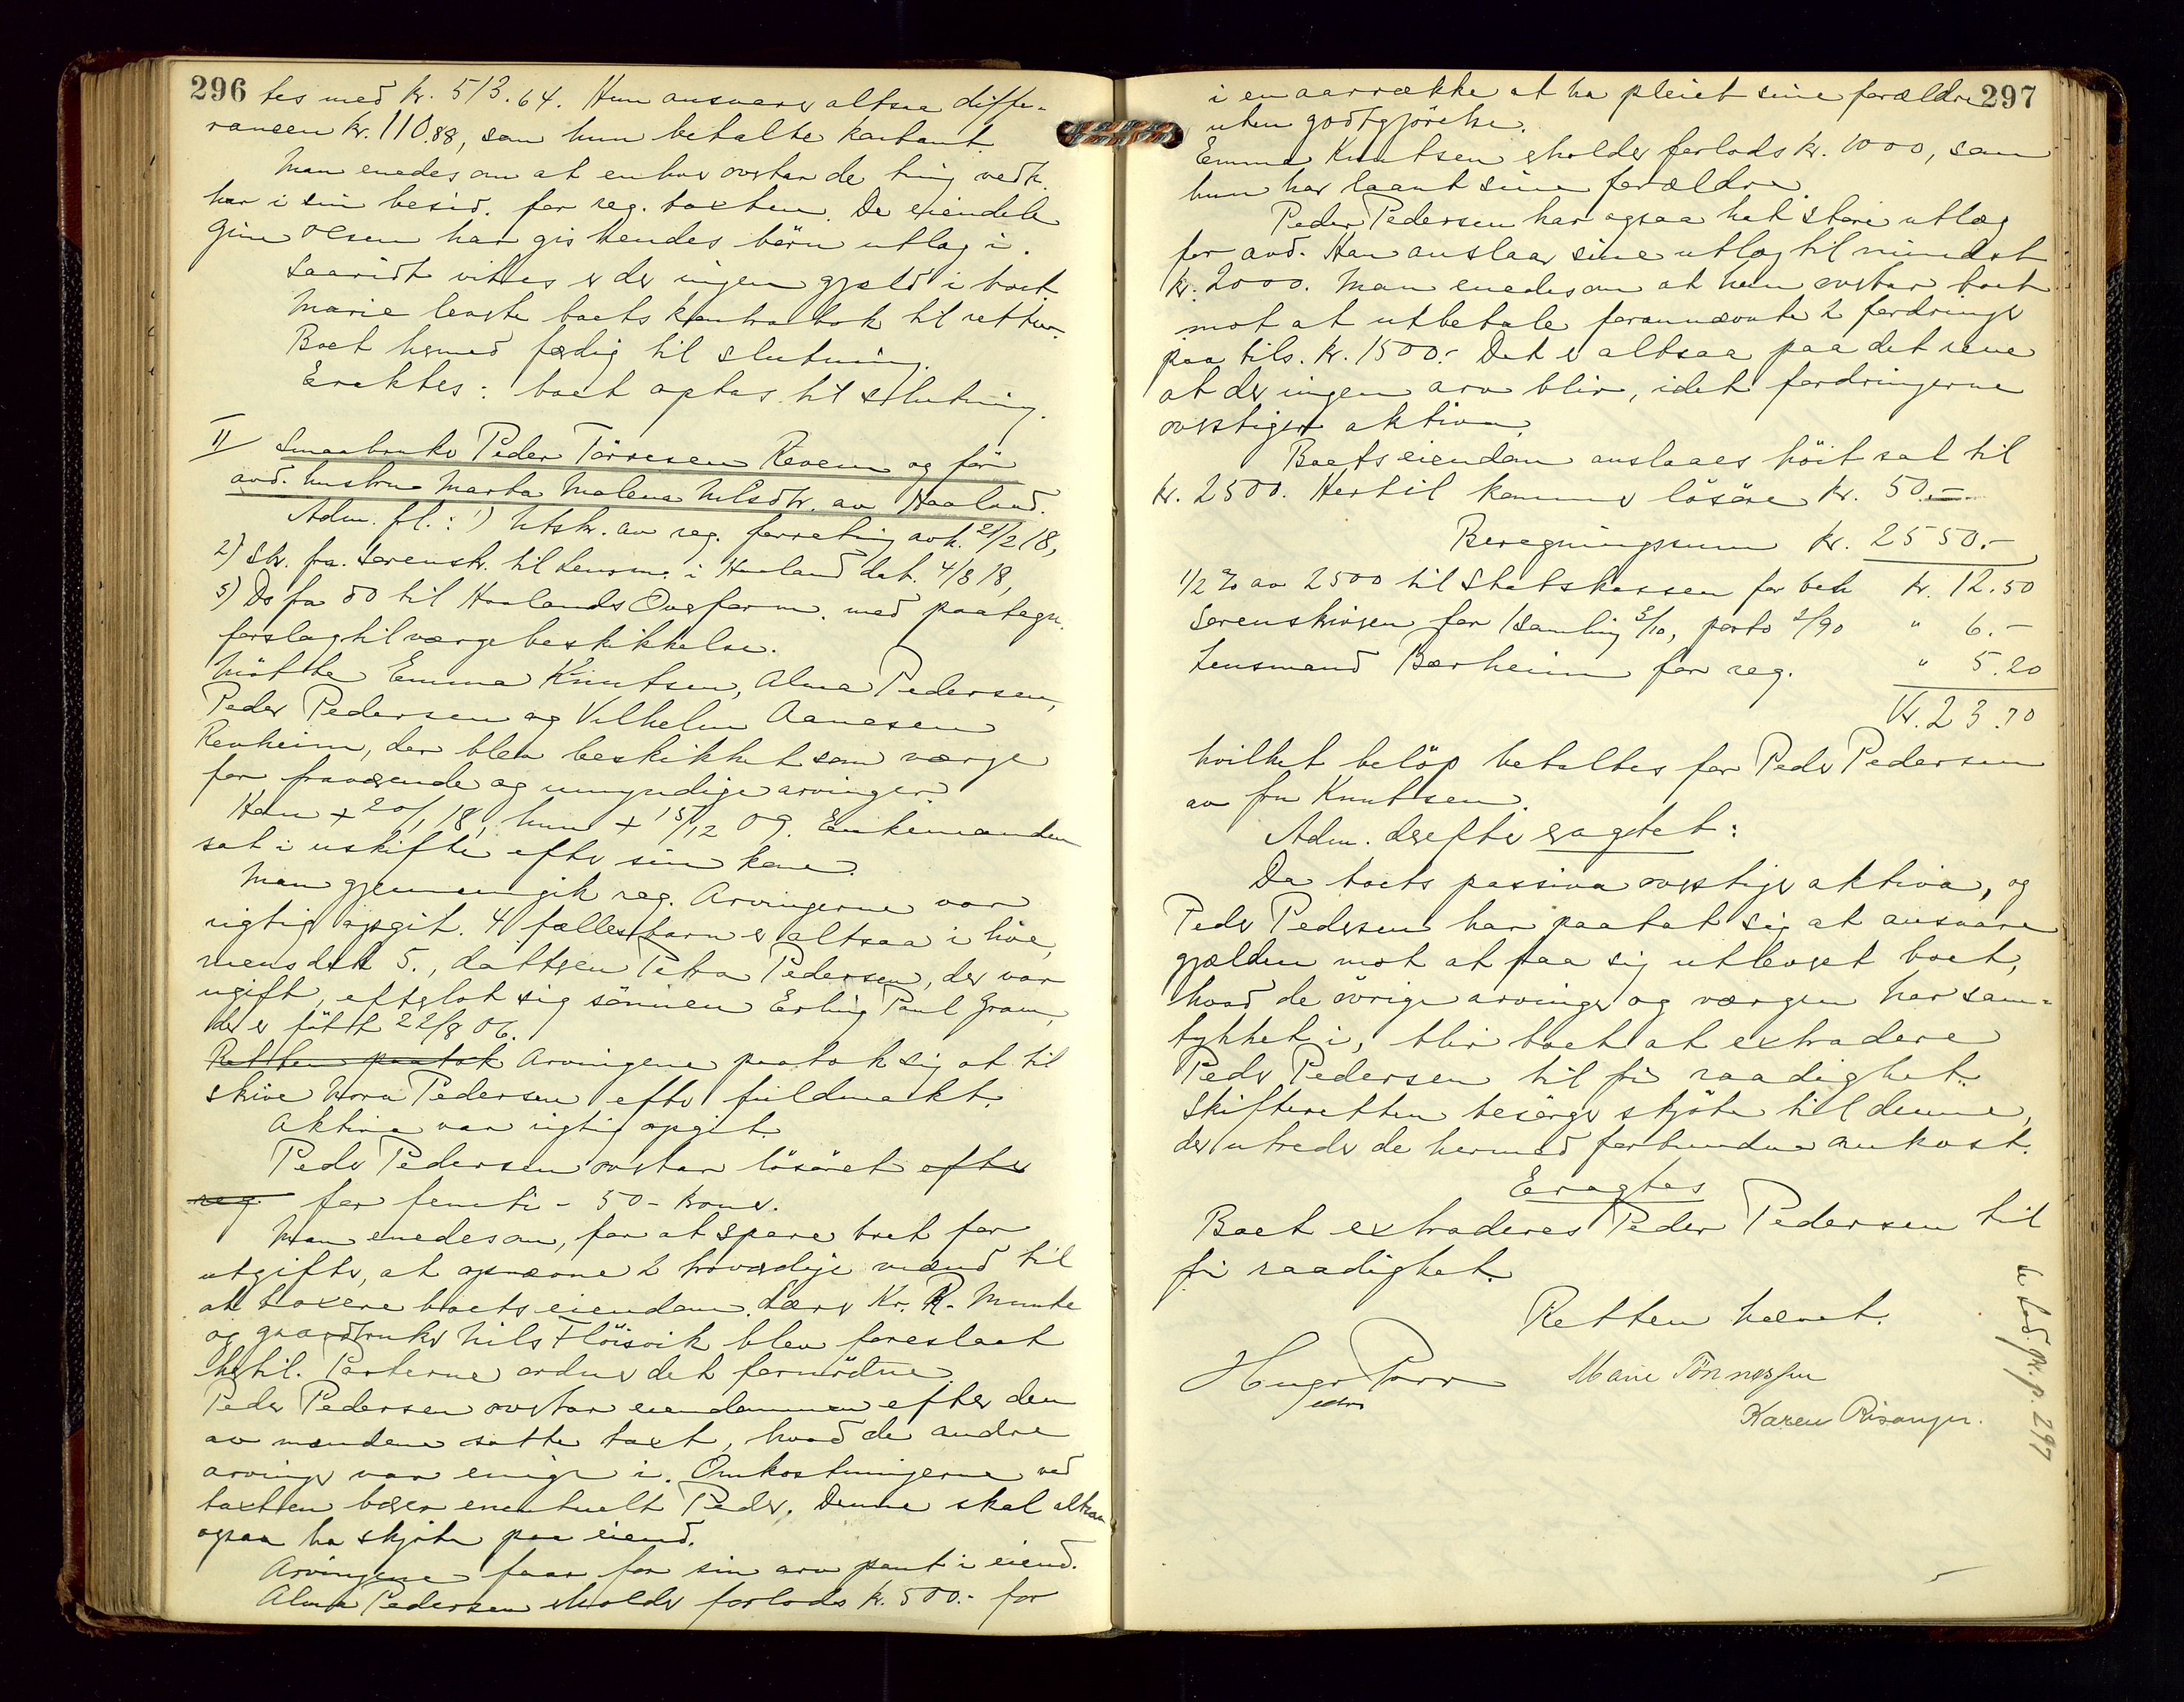 296
tes med kr. 513.64. Hun ansvarer altsaa diffe-
ransen kr. 110.88, som hun betalte kontant.
Man enedes om at enhver overtar de ting vedk.
har i sin besid. for reg. taxten. De eiendele
Gine Olsen har gis hendes börn utlag i.
Saavidt vites er der ingen gjæld i boet.
Marie leverte boets kontrabok til retten.
Boet hermed færdig til slutning.
Eraktes: boet optas til slutning.
II/ Smaabruker Peder Törresen Revem og för
avd. hustru Marta Malena Nilsdtr. av Haaland.
Adm. fl.: 1) Utskr. av reg. forretning avh. 21/2 18,
2) Skr. fra Sorenskr. til Lensm. i Haaland dat. 4/3 18,
3) Do fra do til Haalands Overform. med paategn.
forslag til værgebeskikkelse.
Mötte Emma Knutsen, Alma Pedersen,
Peder Pedersen og Vilhelm Aanesen
Revheim, der blev beskikket som værge
for fraværende og umyndige arvinger.
Han + 20/1 18, hun + 15/12 09. Enkemanden
sat i uskifte efter sin kone.
Man gjennemgik reg. Arvingerne var
rigtig opgit. 4 fællesbarn er altsaa i live,
mens det 5., datteren Petra Pedersen, der var
ugift, efterlot sig sönnen Erling Paul Gram,
der er födt 22/8 06.
Retten paatok Arvingene paatok sig at til
skrive Nora Pedersen efter fuldmakt.
Aktiva var rigtig opgit.
Peder Pedersen overtar lösöret efter
reg for femti - 50 - kroner.
Man enedes om, for at spare boet for
utgifter, at opnævne 2 troværdige mænd til
at taxere boets eiendom. Lærer Kr. R. Munte
og gaardbruker Nils Flöisvik blev foreslaat
hertil. Parterne ordner det fornödne.
Peder Pedersen overtar eiendommen efter den
av mændene satte taxt, hvad de andre
arvinger var enige i. Omkostningerne ved
taxten bærer eventuelt Peder. Denne skal altsaa
ogsaa ha skjöte paa eiend.
Arvingene faar for sin arv pant i eiend.
Alma Pedersen erholder forlods kr. 500.- for
297
i en aarrække at ha pleiet sine forældre
uten godtgjörelse.
Emma Knutsen erholder forlods kr. 1000, som
hun har laant sine forældre.
Peder Pedersen har ogsaa hat store utlæg
for avd. Han anslaar sine utlæg til mindst
kr. 2000. Man enedes om at han overtar boet
mot at utbetale forannævnte 2 fordringer
paa tils. kr. 1500.- Det er altsaa paa det rene
at der ingen arv blir, idet fordringerne
overstiger aktiva.
Boets eiendom anslaaes höit sat til
kr. 2500. Hertil kommer lösöre kr. 50.-
Beregningssum kr. 2550.-
1/2 % av 2500 til Statskassen for beh kr. 12.50
Sorenskriveren for 1 samling 3/10, porto 2/90 " 6.-
Lensmand Bærheim for reg. " 5.20
Kr. 23.70
hvilket belöp betaltes for Peder Pedersen
av fru Knutsen.
Adm. derefter eragtet:
Da boets passiva overstiger aktiva, og
Peder Pedersen har paatat sig at ansvare
gjælden mot at faa sig utleveret boet,
hvad de övrige arvinger og værgen har sam-
tykket i, blir boet at extradere
Peder Pedersen til fri raadighet.
Skifteretten besörger skjöte til denne,
der utreder de hermed forbundne omkost.
Eragtes
Boet extraderes Peder Pedersen til
fri raadighet.
Retten hævet.
Marie Tönnessen
Karen Risanger.
p. 297